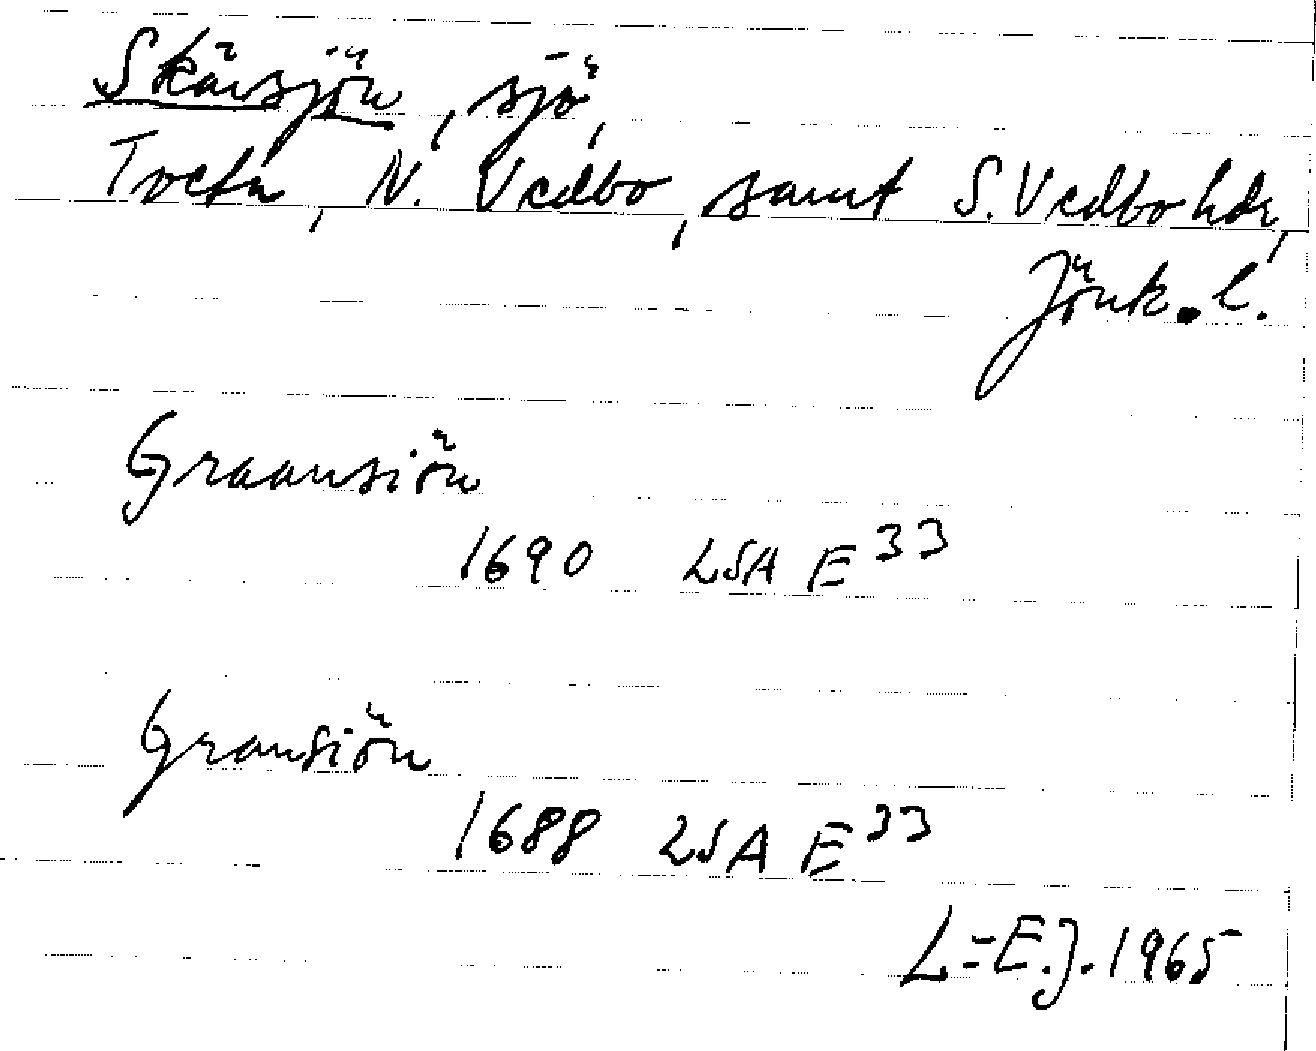 Skärsjön, sjö,
Tveta, N. Vedbo, samt S. Vedbo hdr,
Jönk. l.
Graansiön
1690 LSA E 33
Gransiön
1688 LSA E 33
L-E.J. 1965